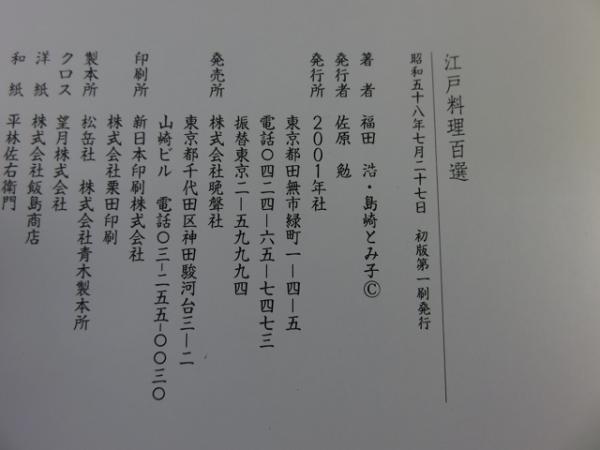 江戸料理百選
昭和五十八年七月二十七日　初版第一刷発行
著　者　福田　浩・島崎とみ子©
発行者　佐原　勉
発行所　2001年社
東京都田無市緑町一―四―五
電話〇四二四―六五―七四七三
振替東京二―五九九九四
発売所　株式会社晩聲社
東京都千代田区神田駿河台三―二
山崎ビル　電話〇三―二五五―〇〇三〇
印刷所　新日本印刷株式会社
株式会社栗田印刷
製本所　松岳社　株式会社青木製本所
クロス　望月株式会社
洋　紙　株式会社飯島商店
和　紙　平林佐右衛門